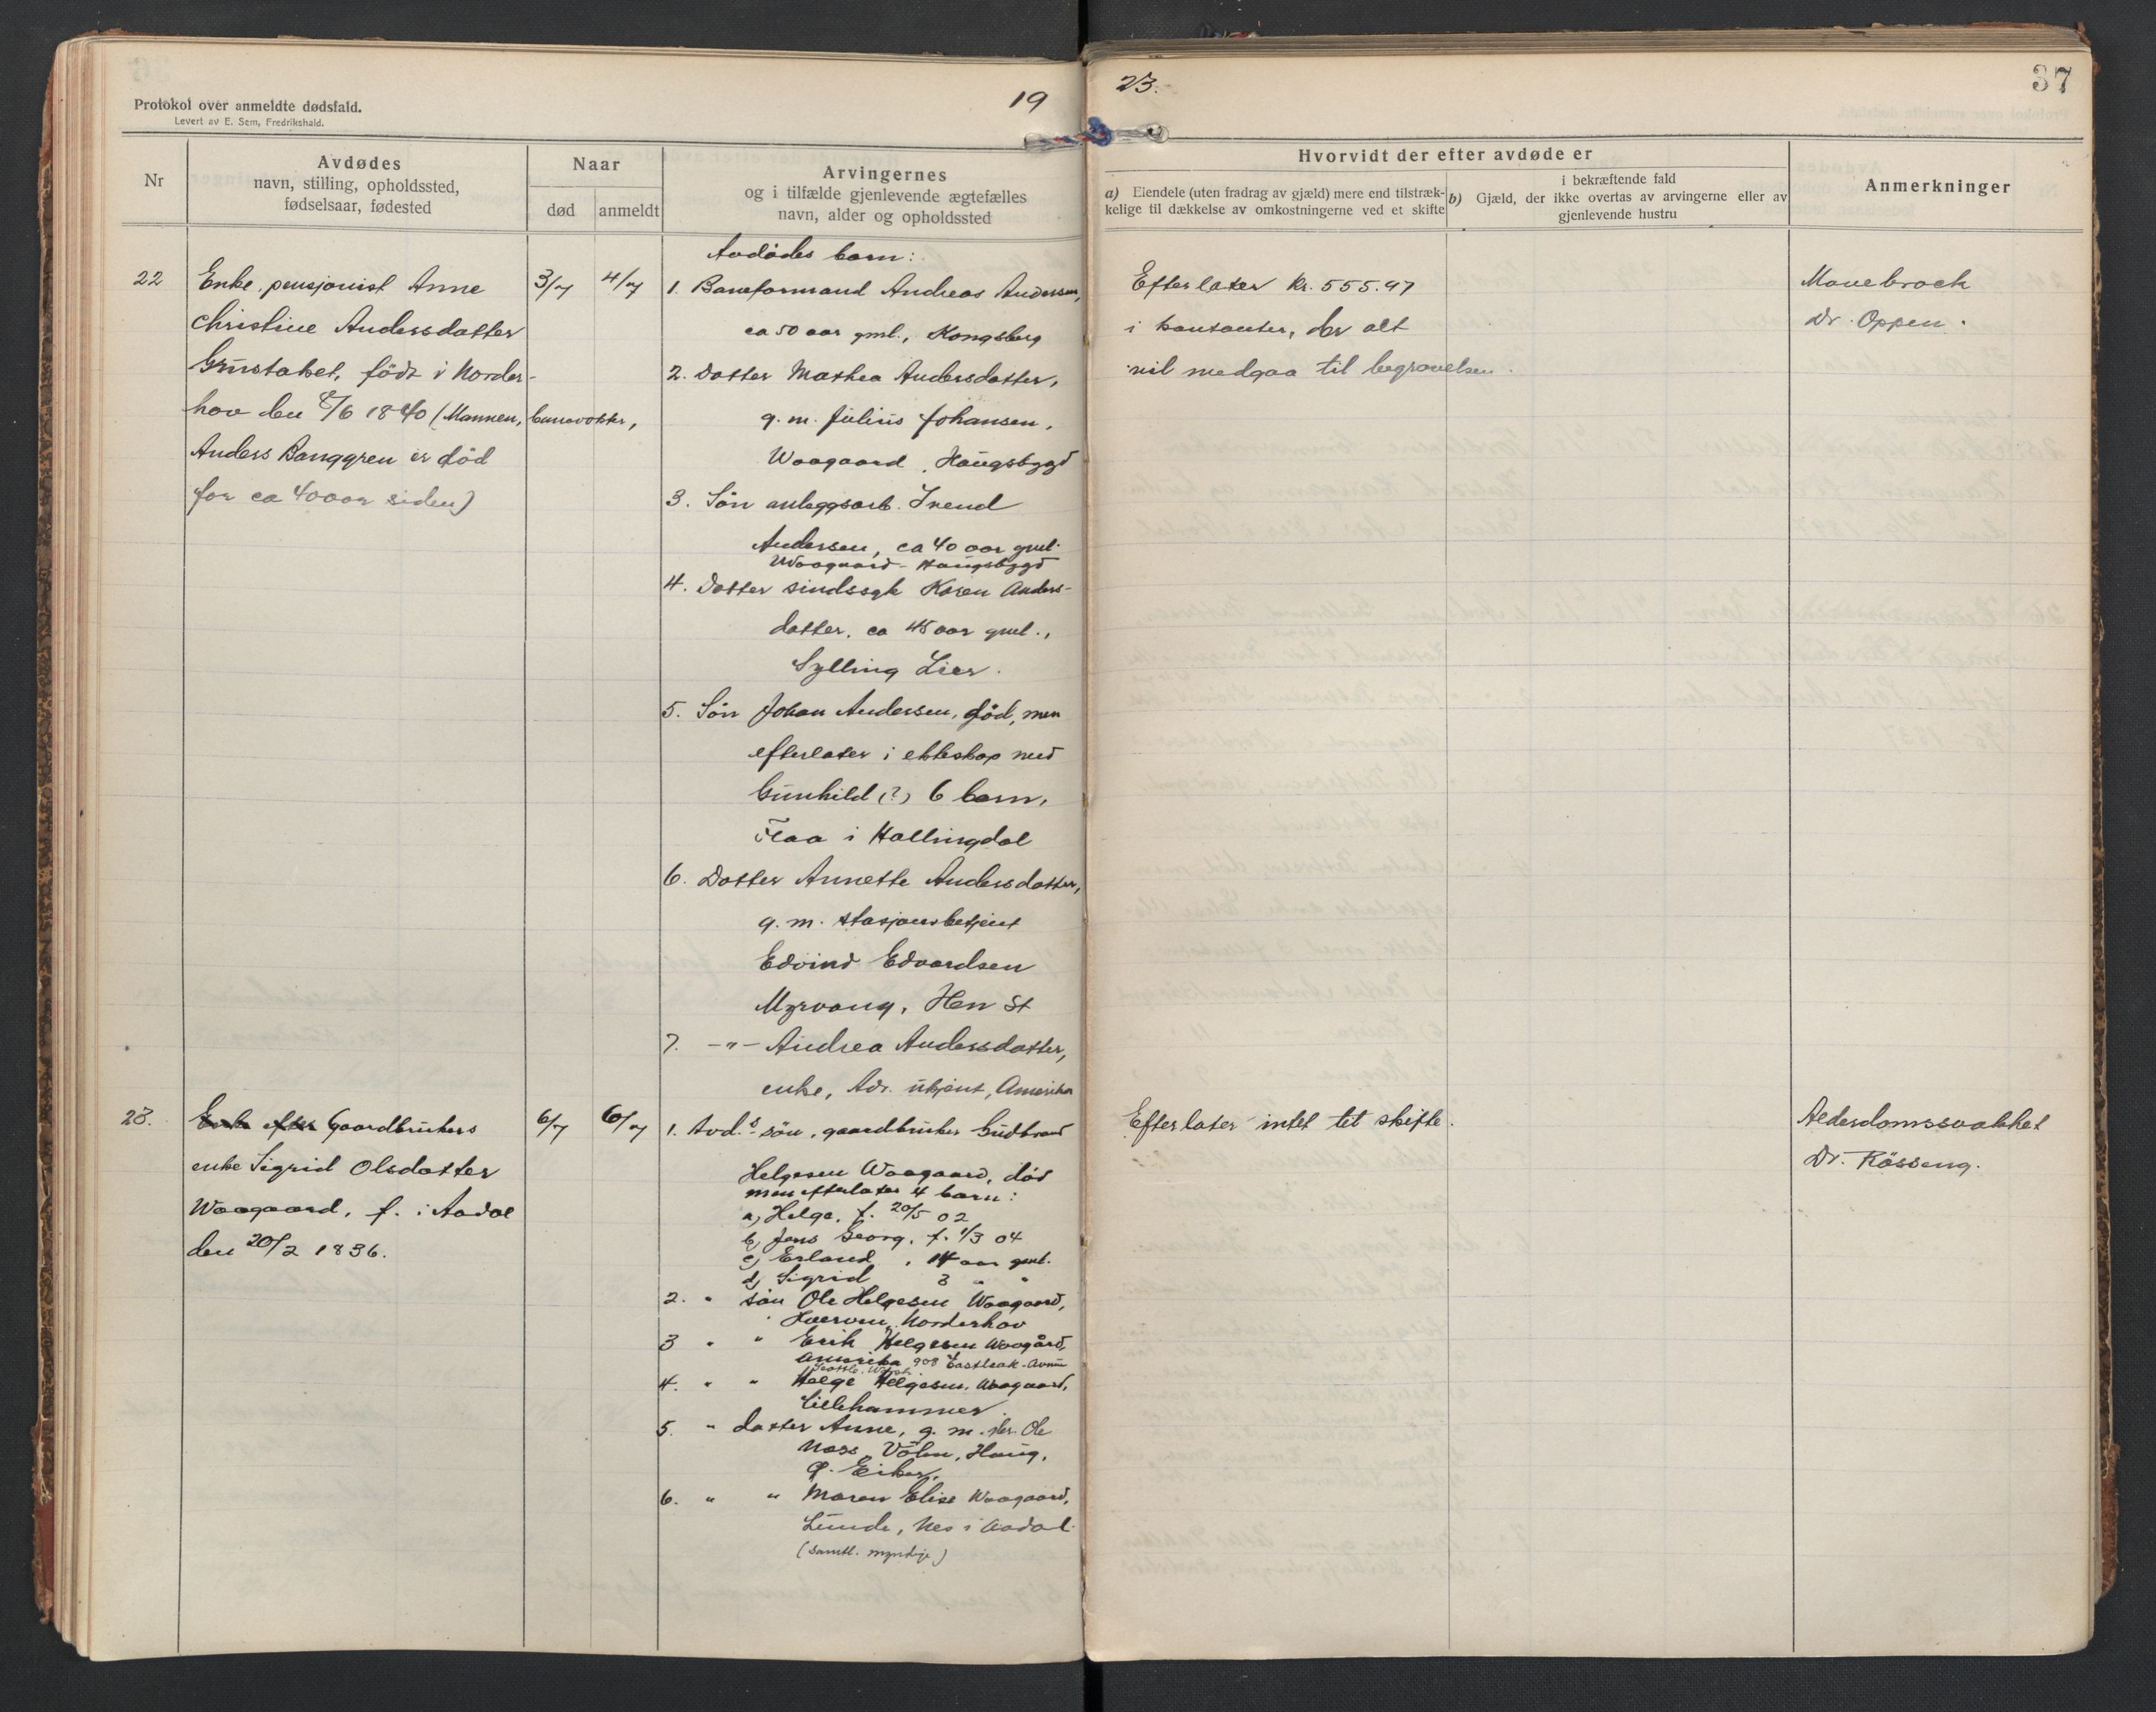 Protokol over anmeldte dødsfald.
Levert av E. Sem, Fredrikshald.
19
Nr
Avdødes
navn, stilling, opholdssted,
fødselsaar, fødested
Naar
død
anmeldt
Arvingernes
og i tilfælde gjenlevende ægtefælles
navn, alder og opholdssted
Avdødes barn:
22
Enke, pensjonist Anne
Christine Andersdatter
Grustaket, født i Norder-
hov den 8/6 1840 (Mannen, banevokter,
Anders Banggren er død
for ca 40 aar siden)
3/7
4/7
1. Baneformand Andreas Andersen,
ca 50 aar gml., Kongsberg
2. Datter Mathea Andersdatter,
g. m. Julius Johansen,
Waagaard, Haugsbygd
3. Søn anleggsarb. Trend
Andersen, ca 40 aar gml.
Waagaard - Haugsbygd
4. Datter sindssyk Karen Anders-
datter, ca 45 aar gml.,
Sylling Lier.
5. Søn Johan Andersen, død, men
efterlater i ekteskap med
Gunhild (?) 6 barn,
Flaa i Hallingdal
6. Datter Annette Andersdatter,
g. m. stasjonsbetjent
Edvind Edvardsen
Myrvang, Hen St
7. -"- Andrea Andersdatter,
enke, Adr. ukjent, Amerika
23.
Enke efter Gaardbrukers
enke Sigrid Olsdatter
Waagaard, f. i Aadal
den 20/2 1836.
6/7
6/7
1. Avd.s søn, gaardbruker Gudbrand
Helgesen Waagaard, død
men efterlater 4 barn:
a) Helge, f. 20/5 02
b) Jens Georg, f. 1/3 04
c) Erland, 14 aar gml.
d) Sigrid 3 " "
2. " søn Ole Helgesen Waagaard,
Hverven, Norderhov
3 " " Erik Helgesen Waagård,
Amerika 908 Eastlak-Avnu
Seattle. Wash.
4. " " Helge Helgesen, Waagaard,
Lillehammer
5. " datter Anne, g. m. Ole
Moss, Haug,
Ø. Eiker,
6. " " Maren Elise Waagaard,
Lunde, Nes i Aadal
(samtl. myndige)
23.
37
Hvorvidt der efter avdøde er
a) Eiendele (uten fradrag av gjæld) mere end tilstræk-
kelige til dækkelse av omkostningerne ved et skifte
i bekræftende fald
b) Gjæld, der ikke overtas av arvingerne eller av
gjenlevende hustru
Anmerkninger
Efterlater kr. 555.97
i kontanter, der alt
vil medgaa til begravelsen.
Dr. Oppen.
Efterlater intet til skifte.
Alderdomssvakhet
Dr. Røsseng.